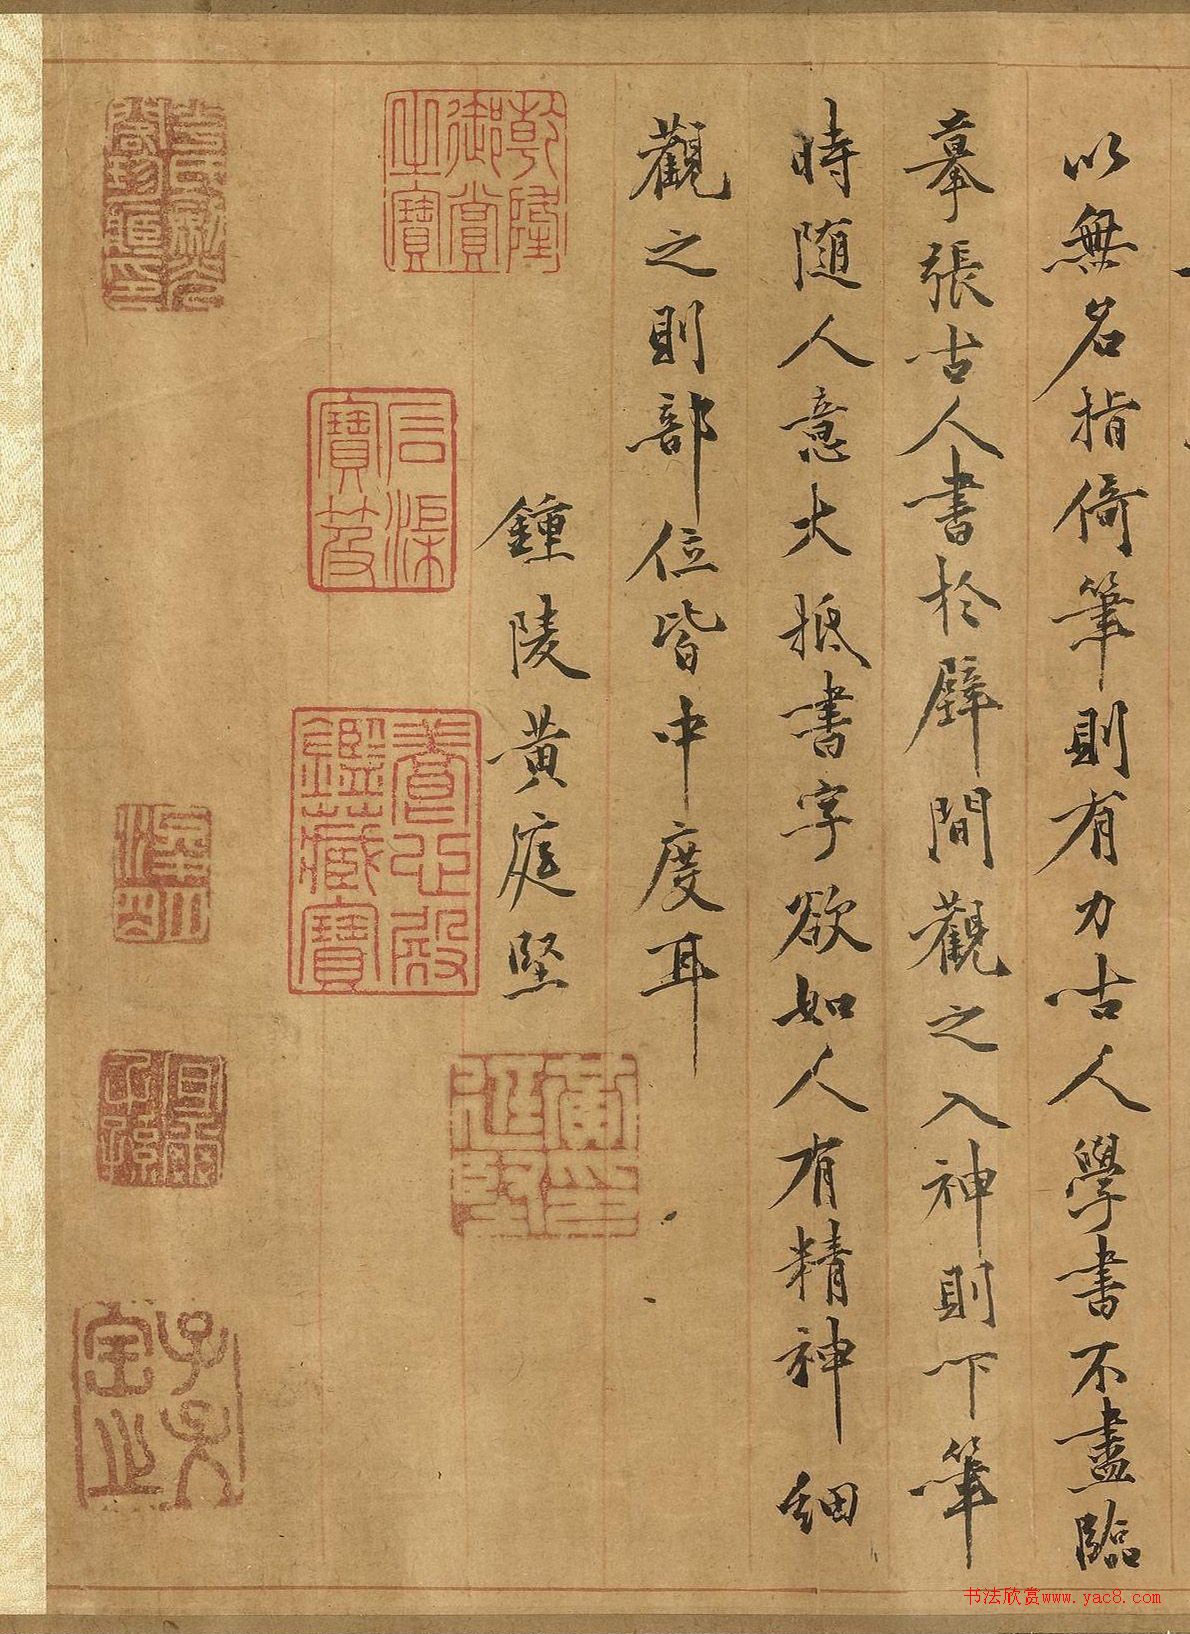 以無名指倚筆則有力古人學書不盡臨
摹張古人書於壁間觀之入神則下筆
時随人意大抵書字欲如人有精神細
觀之則部位皆中度耳
鍾陵黃庭堅
乾隆御賞之寶
石渠寶笈
養心殿鑑藏寶
子孫寶之
书法欣赏www.yac8.com